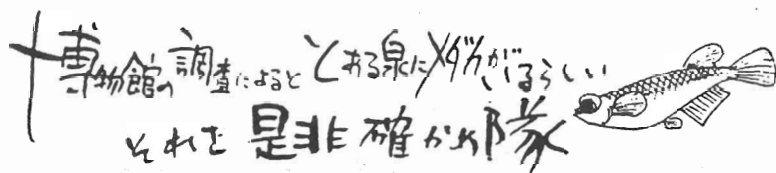 博物館の調査によるととある泉にメダカがいるらしい
それを是非確かめ隊